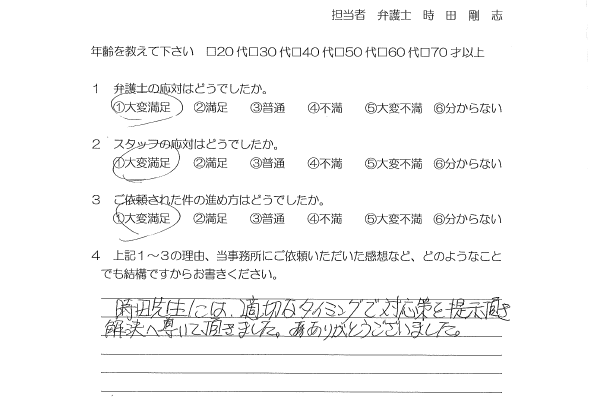 担当者 弁護士 時田 剛志
年齢を教えて下さい □20代□30代□40代□50代□60代□70才以上
1 弁護士の応対はどうでしたか。
①大変満足 ②満足 ③普通 ④不満 ⑤大変不満 ⑥分からない
2 スタッフの応対はどうでしたか。
①大変満足 ②満足 ③普通 ④不満 ⑤大変不満 ⑥分からない
3 ご依頼された件の進め方はどうでしたか。
①大変満足 ②満足 ③普通 ④不満 ⑤大変不満 ⑥分からない
4 上記1～3の理由、当事務所にご依頼いただいた感想など、どのようなこと
でも結構ですからお書きください。
時田先生には、適切なタイミングで対応策を提示頂き
解決へ導いて頂きました。ありがとうございました。